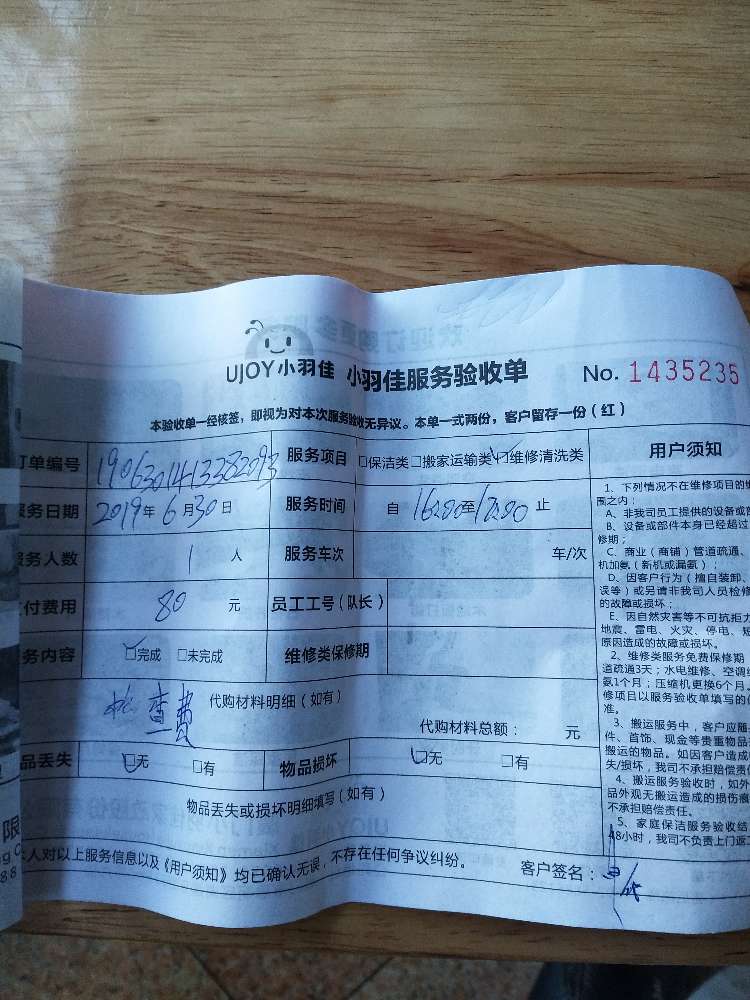 UJOY小羽佳 小羽佳服务验收单 No. 1435235
本验收单一经核签，即视为对本次服务验收无异议。本单一式两份，客户留存一份（红）
订单编号 190630141338 服务项目 □保洁类□搬家运输类☑维修清洗类 用户须知
服务日期 2019年6月30日 服务时间 自 16:00至17:00止
服务人数 1 人 服务车次 车/次
付费用 80 元 员工工号（队长）
务内容 ☑完成 □未完成 维修类保修期
检查费 代购材料明细（如有）
代购材料总额： 元
品丢失 ☑无 □有 物品损坏 ☑无 □有
物品丢失或损坏明细填写（如有）
本人对以上服务信息以及《用户须知》均已确认无误，不存在任何争议纠纷。 客户签名：
1、下列情况不在维修项目的
围之内：
A、非我司员工提供的设备或
B、设备或部件本身已经超过
修期；
C、商业（商铺）管道疏通、
机加氨（新机或漏氨）；
D、因客户行为（擅自装卸、
误等）或另请非我司人员检修
的故障或损坏；
E、因自然灾害等不可抗拒力
地震、雷电、火灾、停电、短
原因造成的故障或损坏。
2、维修类服务免费保修期
道疏通3天；水电维修、空调
氨1个月；压缩机更换6个月。
修项目以服务验收单填写的
准。
3、搬运服务中，客户应随
件、首饰、现金等贵重物品
搬运的物品。如因客户造成
失/损坏，我司不承担赔偿责
4、搬运服务验收时，如外
品外观无搬运造成的损伤痕
不承担赔偿责任。
5、家庭保洁服务验收结
48小时，我司不负责上门返
限